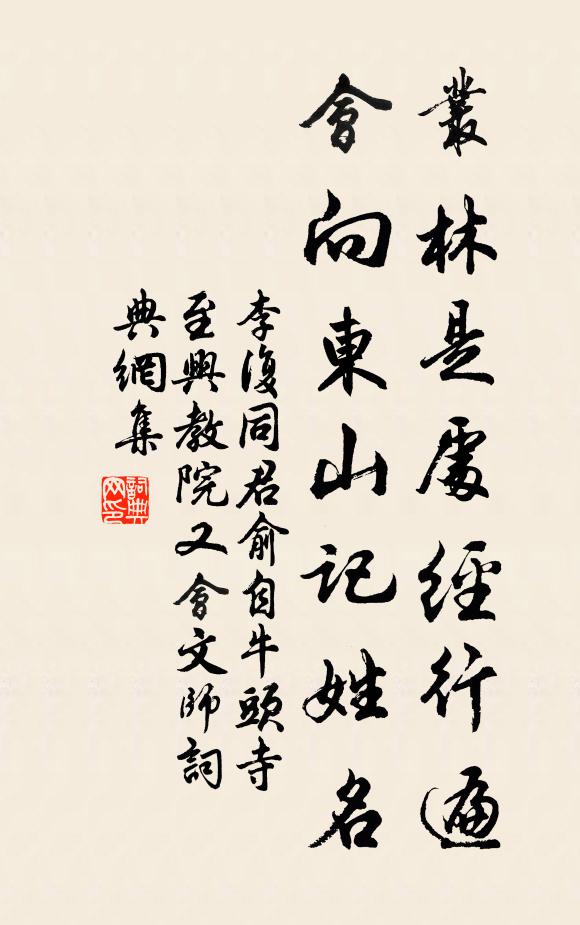 叢林是處經行遍
會向東山記姓名
李復同君俞自牛頭寺
至興教院又會文師詞
典網集
詞典网印